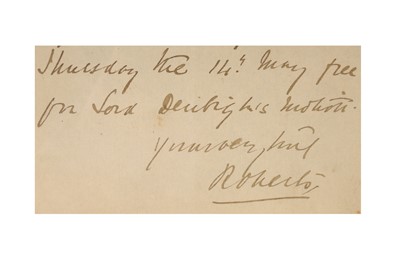 Thursday the 14th. May free
for Lord Denbigh's motion.
Yours very truly
Roberts